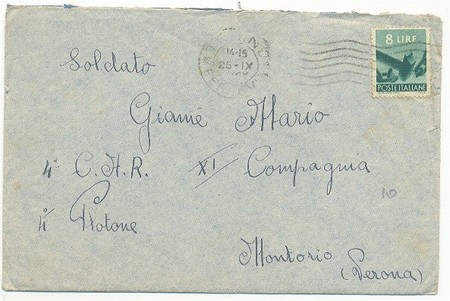 8 LIRE
POSTE ITALIANE
14-15
25-IX
Soldato
Giamé Mario
4° C.A.R. XI Compagnia
4° Plotone
10
Montorio
(Verona)